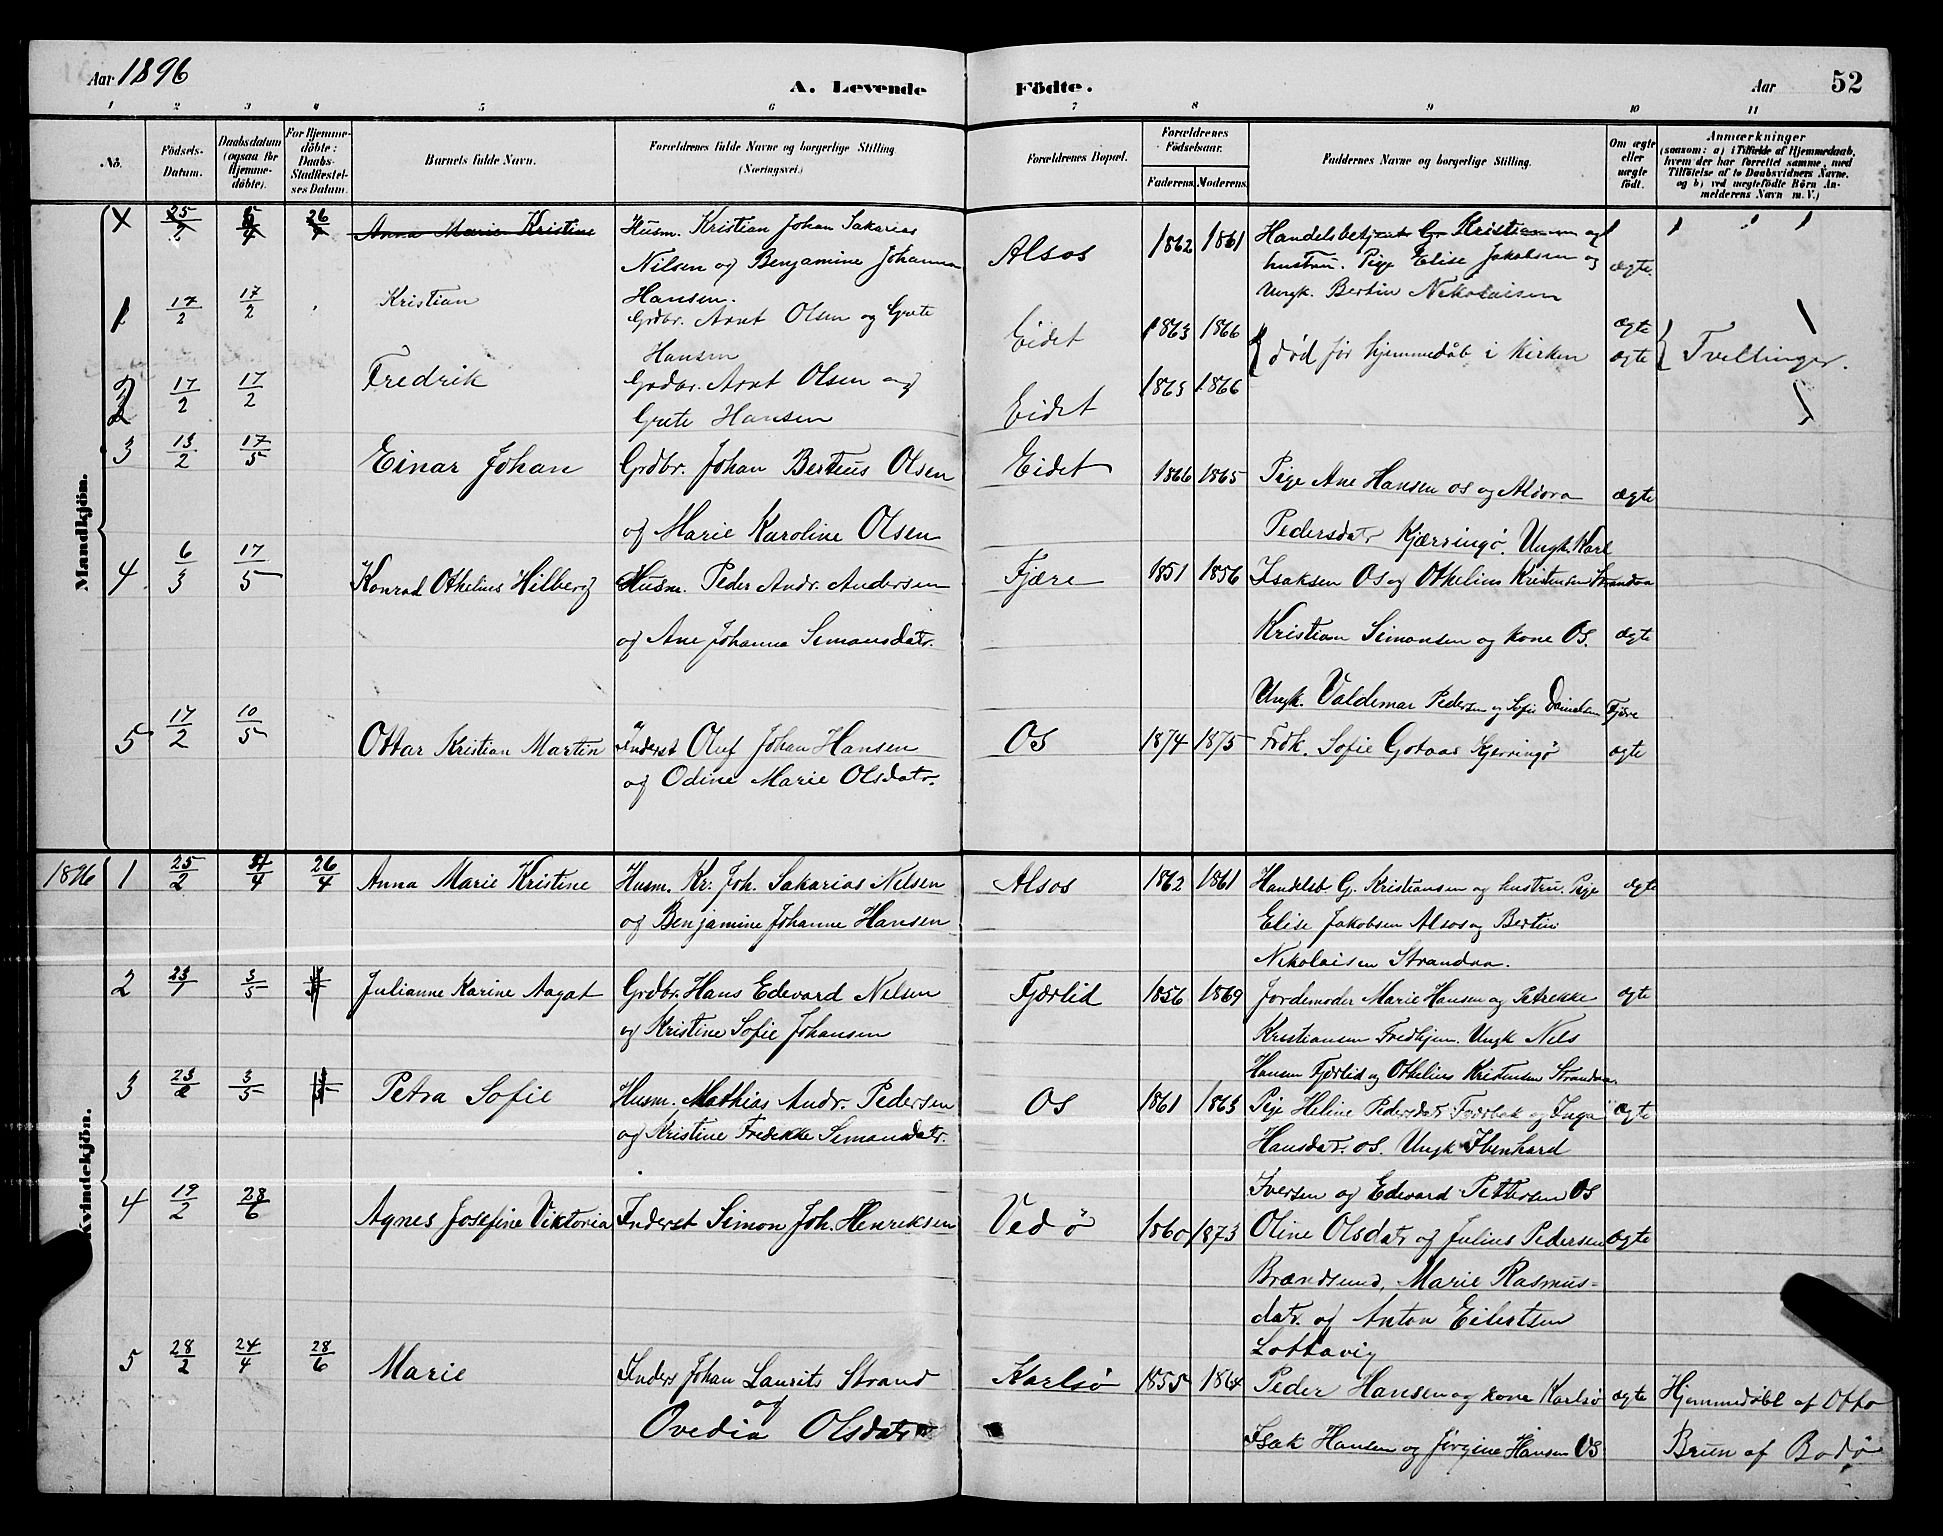 Aar 1896
A. Levende Födte.
Aar 52
1 2 3 4 5 6 7 8 9 10 11
No.
Födsels-Datum.
Daabsdatum (ogsaa for Hjemmedöbte).
For Hjemmedöbte: Daabs-Stadfæstelses Datum.
Barnets fulde Navn.
Forældrenes fulde Navne og borgerlige Stilling (Næringsvei.)
Forældrenes Bopæl.
Forældrenes Födselsaar.
Faderens. Moderens.
Faddernes Navne og borgerlige Stilling.
Om ægte eller uægte födt.
Anmærkninger (saasom: a) i Tilfælde af Hjemmedaab, hvem der har forrettet samme, med Tilföielse af to Daabsvidners Navne. og b) ved uægtefödte Börn Anmelderens Navn m. V.)
Mandkjön.
25/2 26/4 Anna Marie Kristine Husm. Kristian Johan Sakarias Alsos 1862 1861 Handelsbetjent G. Kristiansen og ægte
Nilsen og Benjamine Johanna hustru. Pige Elise Jakobsen og
Hansen. Ungk. Bertin Nikolaisen
1 17/2 17/2 Kristian Grdbr. Arnt Olsen og Grete Eidet 1863 1866 død før hjemmedåb i kirken ægte Tvillinger.
Hansen ægte
2 17/2 17/2 Fredrik Grdbr. Arnt Olsen og Eidet 1863 1866
Grete Hansen
3 13/2 17/5 Einar Johan Grdbr. Johan Berteus Olsen Eidet 1866 1865 Pige Ane Hansen Os og Aldora ægte
og Marie Karoline Olsen Pedersdatr Kjærringø. Ungk. Karl
4 6/3 17/5 Konrad Othelius Hilberg Husm. Peder Andr. Andersen Fjære 1851 1856 Isaksen Os og Othelius Kristensen Strandaa
og Ane Johanna Simonsdatr. Kristian Simonsen og kone Os. ægte
Ungk. Valdemar Pedersen og Sofie Danielsen Fjære
5 17/2 10/5 Ottar Kristian Martin Inderst Oluf Johan Hansen Os 1874 1875 Frøk. Sofie Gotaas Kjerringø ægte
og Odine Marie Olsdatr.
Kvindekjön.
1896 1 25/2 26/4 Anna Marie Kristine Husm. Kr. Joh. Sakarias Nelsen Alsos 1862 1861 Handelsb. G. Kristiansen og hustru. Pige ægte
og Benjamine Johanne Hansen Elise Jakobsen Alsos og Bertin
Nikolaisen Strandaa.
2 23/1 3/5 Julianne Karine Aagat Grdbr. Hans Edevard Nelsen Fjærlid 1856 1869 Jordemoder Marie Hansen og Petrekke ægte
og Kristine Sofie Johansen Kristiansen Fredhjem. Ungk Nels
Hansen Fjærlid og Othelius Kristensen Strandaa.
3 23/2 3/5 Petra Sofie Husm. Mathias Andr. Pedersen Os 1861 1863 Pige Heline Pedersdatr og Inga ægte
og Kristine Fredikke Simonsdatr. Hansdatr. Os. Ungk Ibenhard
Iversen og Edevard Pettersen Os
4 19/2 28/6 Agnes Josefine Viktoria Inderst Simon Joh. Henriksen Vedø 1860 1873 Oline Olsdatr og Julius Pedersen ægte
Brændsund, Marie Rasmus-
datr. og Anton Eilertsen
Lottavig
5 28/2 24/4 28/6 Marie Inders Johan Laurits Strand Karlsø 1855 1864 Peder Hansen og kone Karlsø ægte Hjemmedøbt af Otto
og
Ovedia Olsdatr Isak Hansen og Jørgine Hansen Os Bruun af Bodø